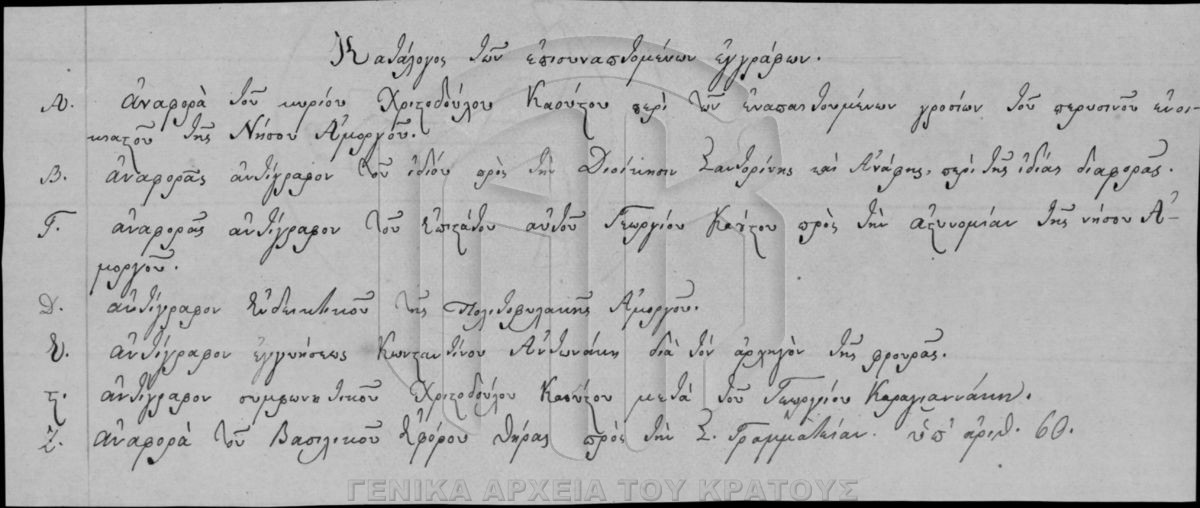 Κατάλογος τῶν ἐπισυναπτομένων ἐγγράφων.
Α. ἀναφορὰ τοῦ κυρίου Χριστοδούλου Καούτου περὶ τῶν ἐναπαιτουμένων γροσίων τοῦ περυσινοῦ ἐνοι-
κιατοῦ τῆς Νήσου Ἀμοργοῦ.
Β. ἀναφορᾶς ἀντίγραφον τοῦ ἰδίου πρὸς τὴν Διοίκησιν Σαντορίνης καὶ Ἀνάφης, περὶ τῆς ἰδίας διαφορᾶς.
Γ. ἀναφορᾶς ἀντίγραφον τοῦ ἐπιστάτου αὐτοῦ Γεωργίου Καούτου πρὸς τὴν ἀστυνομίαν τῆς νήσου Ἀ-
μοργοῦ.
Δ. ἀντίγραφον ἐνδεικτικοῦ τῆς πολιτοφυλακῆς Ἀμοργοῦ.
Ε. ἀντίγραφον ἐγγυήσεως Κωνσταντίνου Ἀντωνάκη διὰ τὸν ἀρχηγὸν τῆς φρουρᾶς.
ϛ. ἀντίγραφον συμφωνητικοῦ Χριστοδούλου Καούτου μετὰ τοῦ Γεωργίου Καραγιαννάκη.
Ζ. ἀναφορὰ τοῦ Βασιλικοῦ Ἐφόρου Θήρας πρὸς τὴν Σ. Γραμματείαν. ὑπ' ἀριθ. 60.
ΓΕΝΙΚΑ ΑΡΧΕΙΑ ΤΟΥ ΚΡΑΤΟΥΣ